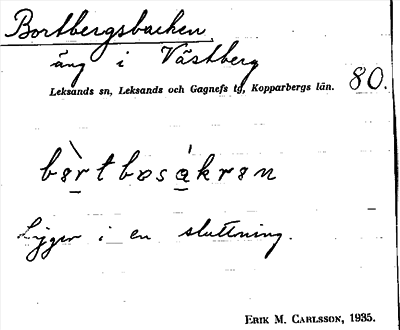 Bortbergsbacken
äng i Västberg
Leksands sn, Leksands och Gagnefs tg, Kopparbergs län.
80.
Ligger i en sluttning.
ERIK M. CARLSSON, 1935.